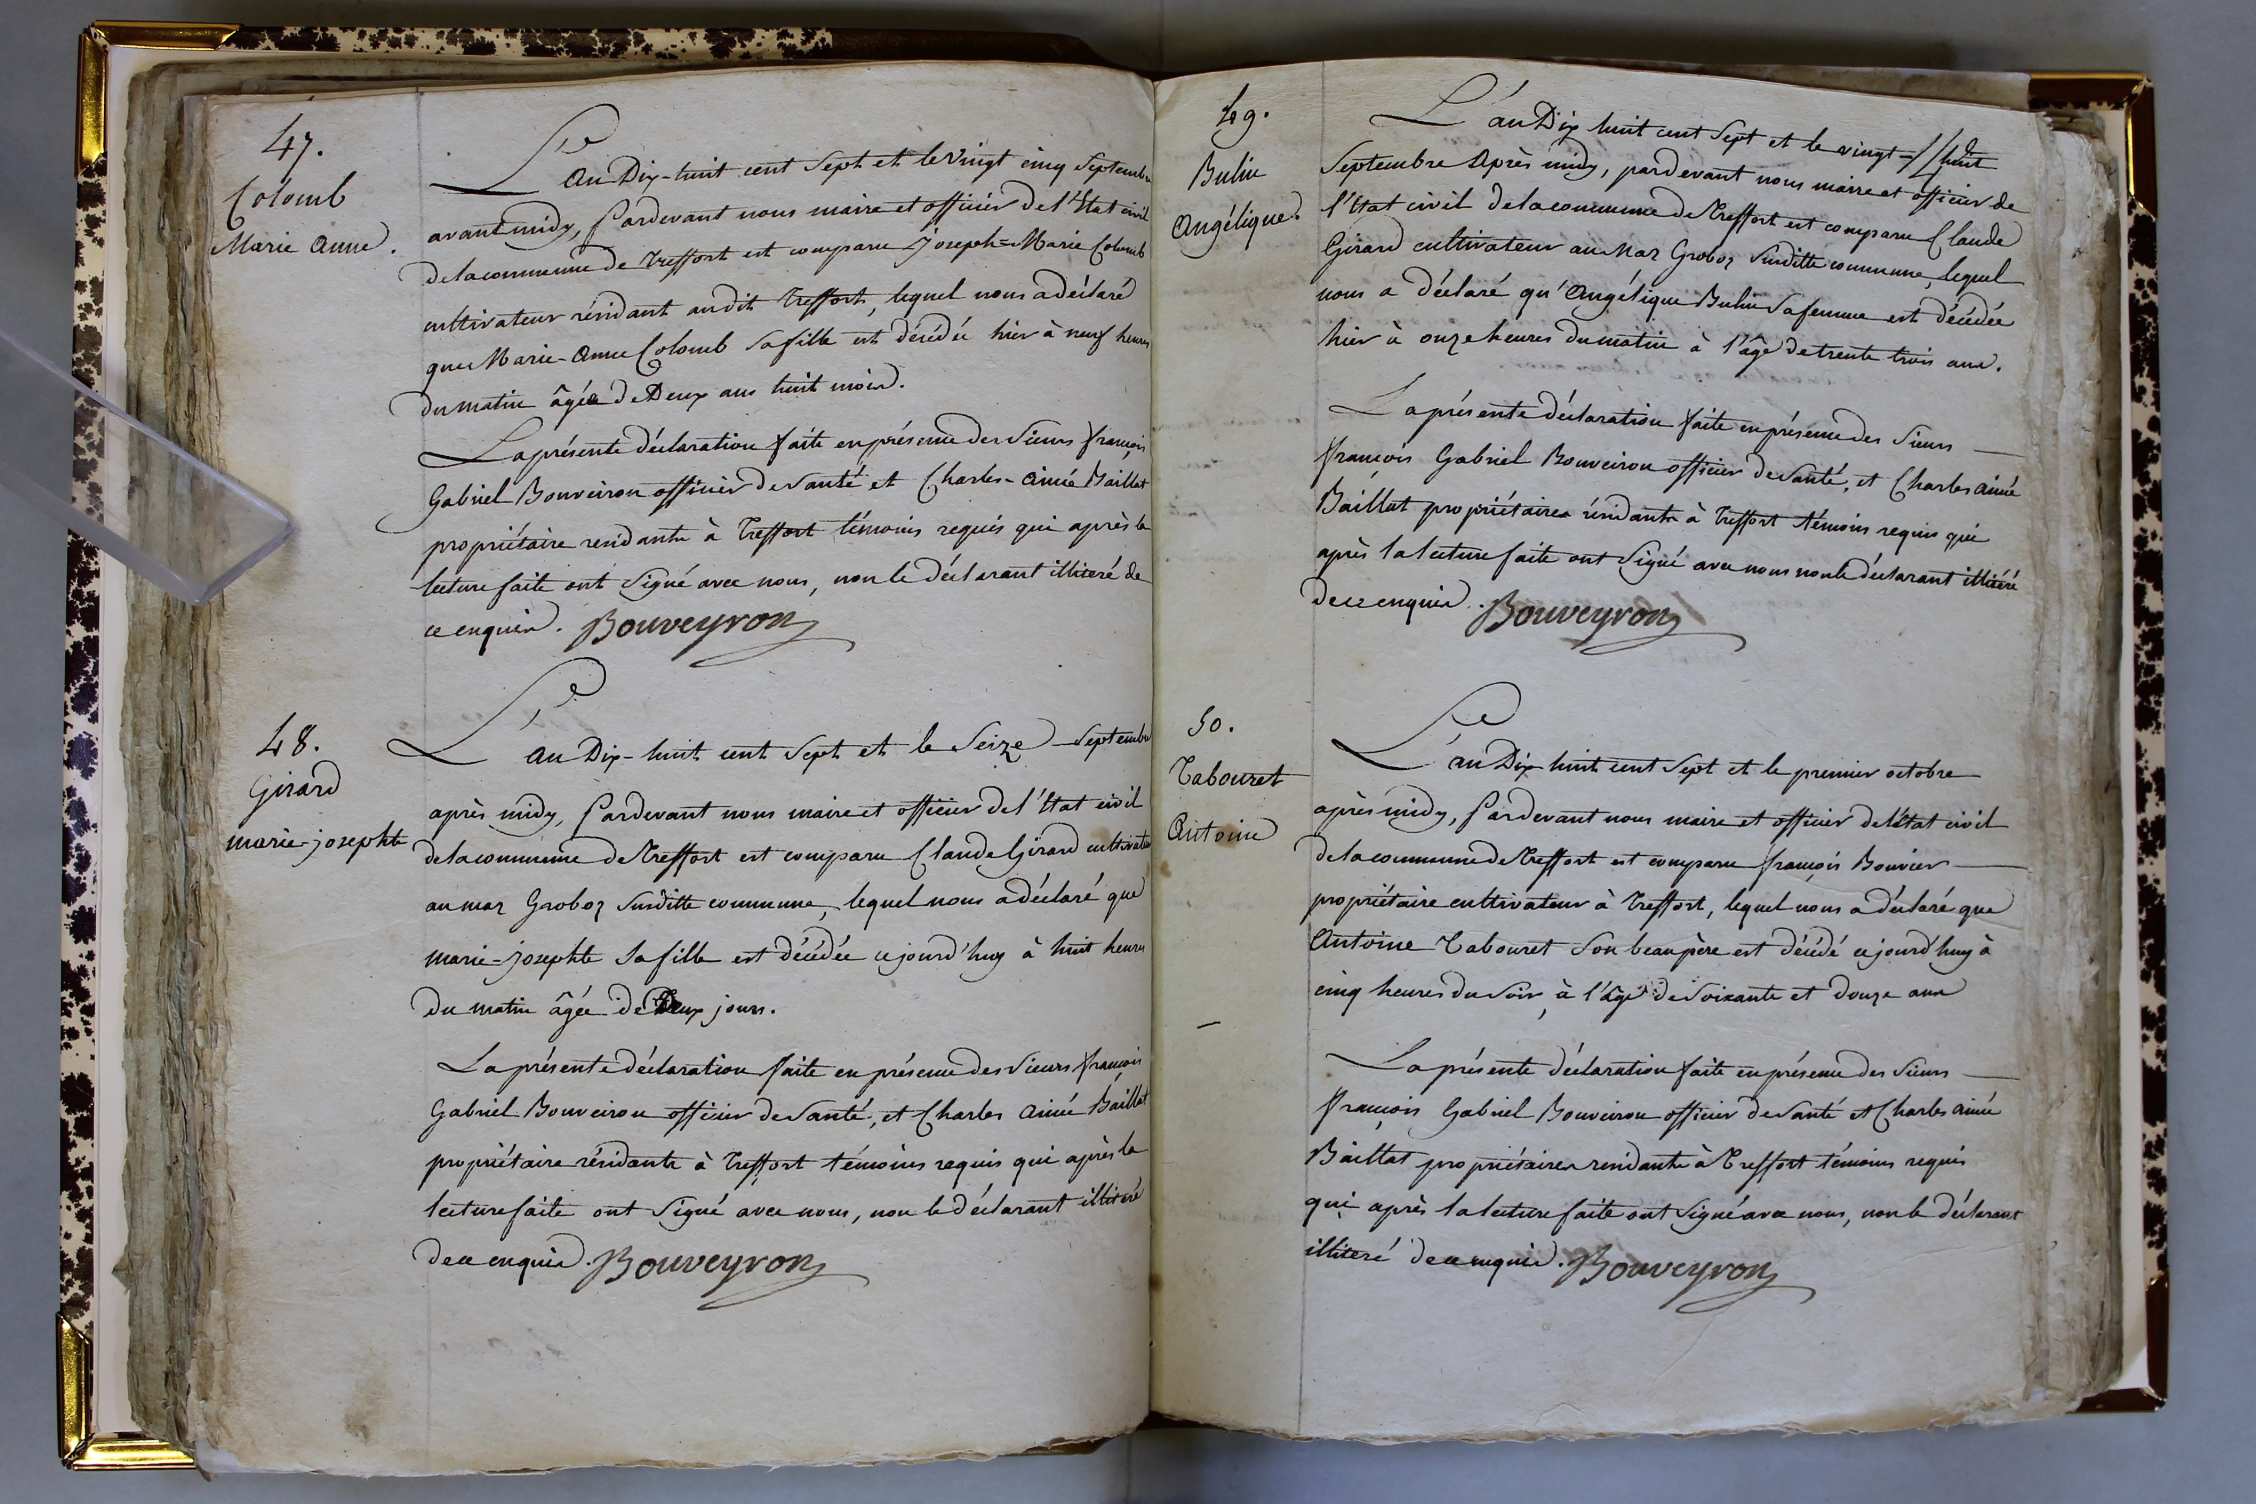 47.
Colomb
Marie Anne.
L'an Dix-huit cent Sept et le vingt cinq Septembre
avant midy, Pardevant nous maire et officier de l'Etat civil
de la commune de Treffort est comparu Joseph-Marie Colomb
cultivateur résidant audit Treffort, lequel nous a déclaré
que Marie-Anne Colomb sa fille est décédée hier à neuf heures
du matin âgée de Deux ans huit mois.
La présente déclaration faite en présence des Sieurs françois
Gabriel Bouveiron officier de santé et Charles-aimé Baillat
propriétaire residants à Treffort témoins requis qui après la
lecture faite ont Signé avec nous, non le déclarant illiteré de
ce enquis. Bouveyron
48.
Girard
marie-josephte
L'an Dix-huit cent Sept et le Seize Septembre
après midy, Pardevant nous maire et officier de l'Etat civil
de la commune de Treffort est comparu Claude Girard cultivateur
au mas Groboz susditte commune, lequel nous a déclaré que
marie-josephte sa fille est décédée cejourd'huy à huit heures
du matin âgée de Deux jours.
La présente déclaration faite en présence des Sieurs françois
Gabriel Bouveiron officier de santé, et Charles aimé Baillat
propriétaire résidants à Treffort témoins requis qui après la
lecture faite ont Signé avec nous, non le déclarant illiteré
de ce enquis. Bouveyron
49.
Bulin
Angélique.
L'an Dix huit cent Sept et le vingt-huit
Septembre Après midy, pardevant nous maire et officier de
l'Etat civil de la commune de Treffort est comparu Claude
Girard cultivateur au Mas Groboz susditte commune, lequel
nous a déclaré qu'Angélique Bulin sa femme est décédée
hier à onze heures du matin à l'âge de trente trois ans.
La présente déclaration faite en présence des Sieurs
françois Gabriel Bouveiron officier de santé, et Charles aimé
Baillat propriétaires résidants à Treffort témoins requis qui
après la lecture faite ont Signé avec nous non le déclarant illiteré
de ce enquis. Bouveyron
50.
Tabouret
Antoine
L'an Dix huit cent Sept et le premier octobre
après midy, Pardevant nous maire et officier de l'état civil
de la commune de Treffort est comparu françois Bouvier
propriétaire cultivateur à Treffort, lequel nous a déclaré que
Antoine Tabouret son beaupère est décédé cejourd'huy à
cinq heures du soir, à l'âge de soixante et douze ans
La présente déclaration faite en présence des Sieurs
françois Gabriel Bouveiron officier de santé et Charles aimé
Baillat propriétaires residants à Treffort témoins requis
qui après la lecture faite ont Signé avec nous, non le déclarant
illiteré de ce enquis. Bouveyron